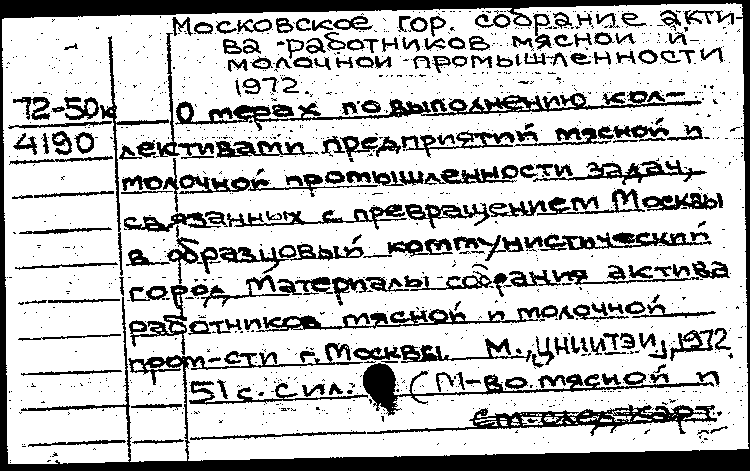 Московское гор. собрание акти-
ва работников мясной и
молочной промышленности
1972.
72-50к О мерах по выполнению кол-
4190 лективами предприятий мясной и
молочной промышленности задач,
связанных с превращением Москвы
в образцовый коммунистический
город. Материалы собрания актива
работников мясной и молочной
пром-сти г. Москвы. М., ЦНИИТЭИ, 1972.
51 с. с ил. (М-во мясной и
см. след. карт.